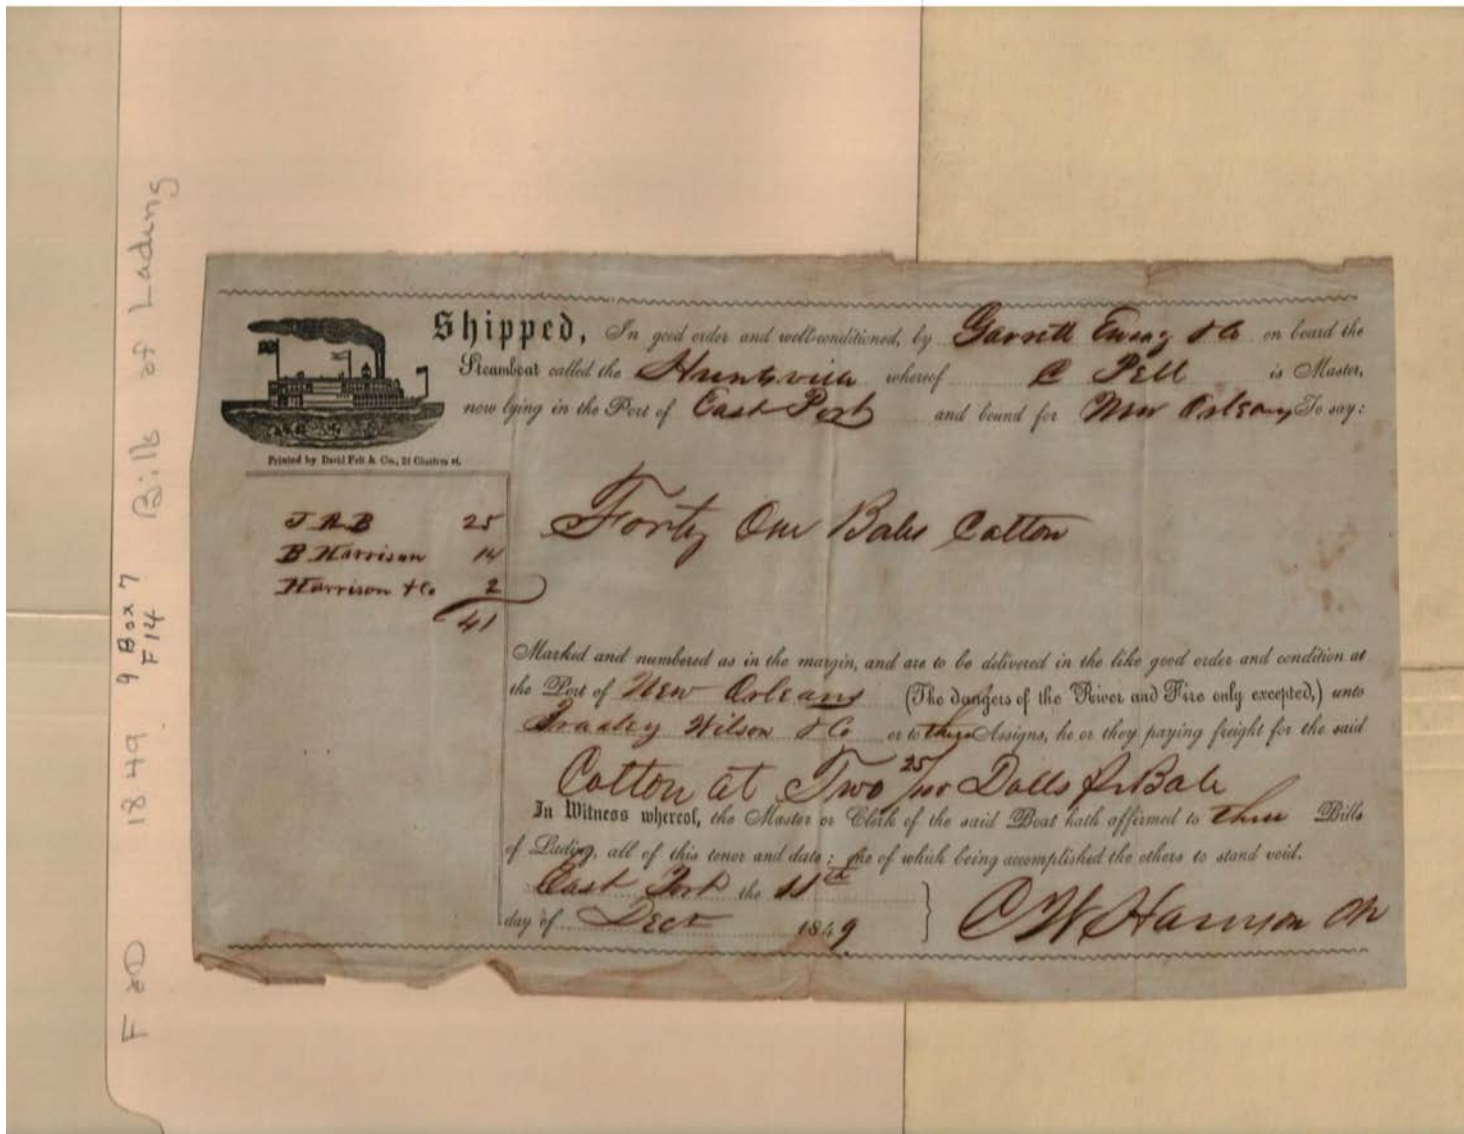 F & D 1849 9 Box 7 Bills of Lading
F14
Shipped, In good order and well-conditioned, by Garrett Ewing & Co on board the
Steamboat called the Huntsville whereof C Pell is Master,
now lying in the Port of East Port and bound for New Orleans To say:
Printed by David Felt & Co., Chatham st.
J A B 25
B Harrison 14
Harrison & Co 2
41
Forty One Bales Cotton
Marked and numbered as in the margin, and are to be delivered in the like good order and condition at
the Port of New Orleans (The dangers of the River and Fire only excepted,) unto
Bradley Wilson & Co or to their Assigns, he or they paying freight for the said
Cotton at Two 25/100 Dolls pr Bale
In Witness whereof, the Master or Clerk of the said Boat hath affirmed to three Bills
of Lading, all of this tenor and date; one of which being accomplished the others to stand void.
East Port the 11th
day of Decr 1849
C W Harrison